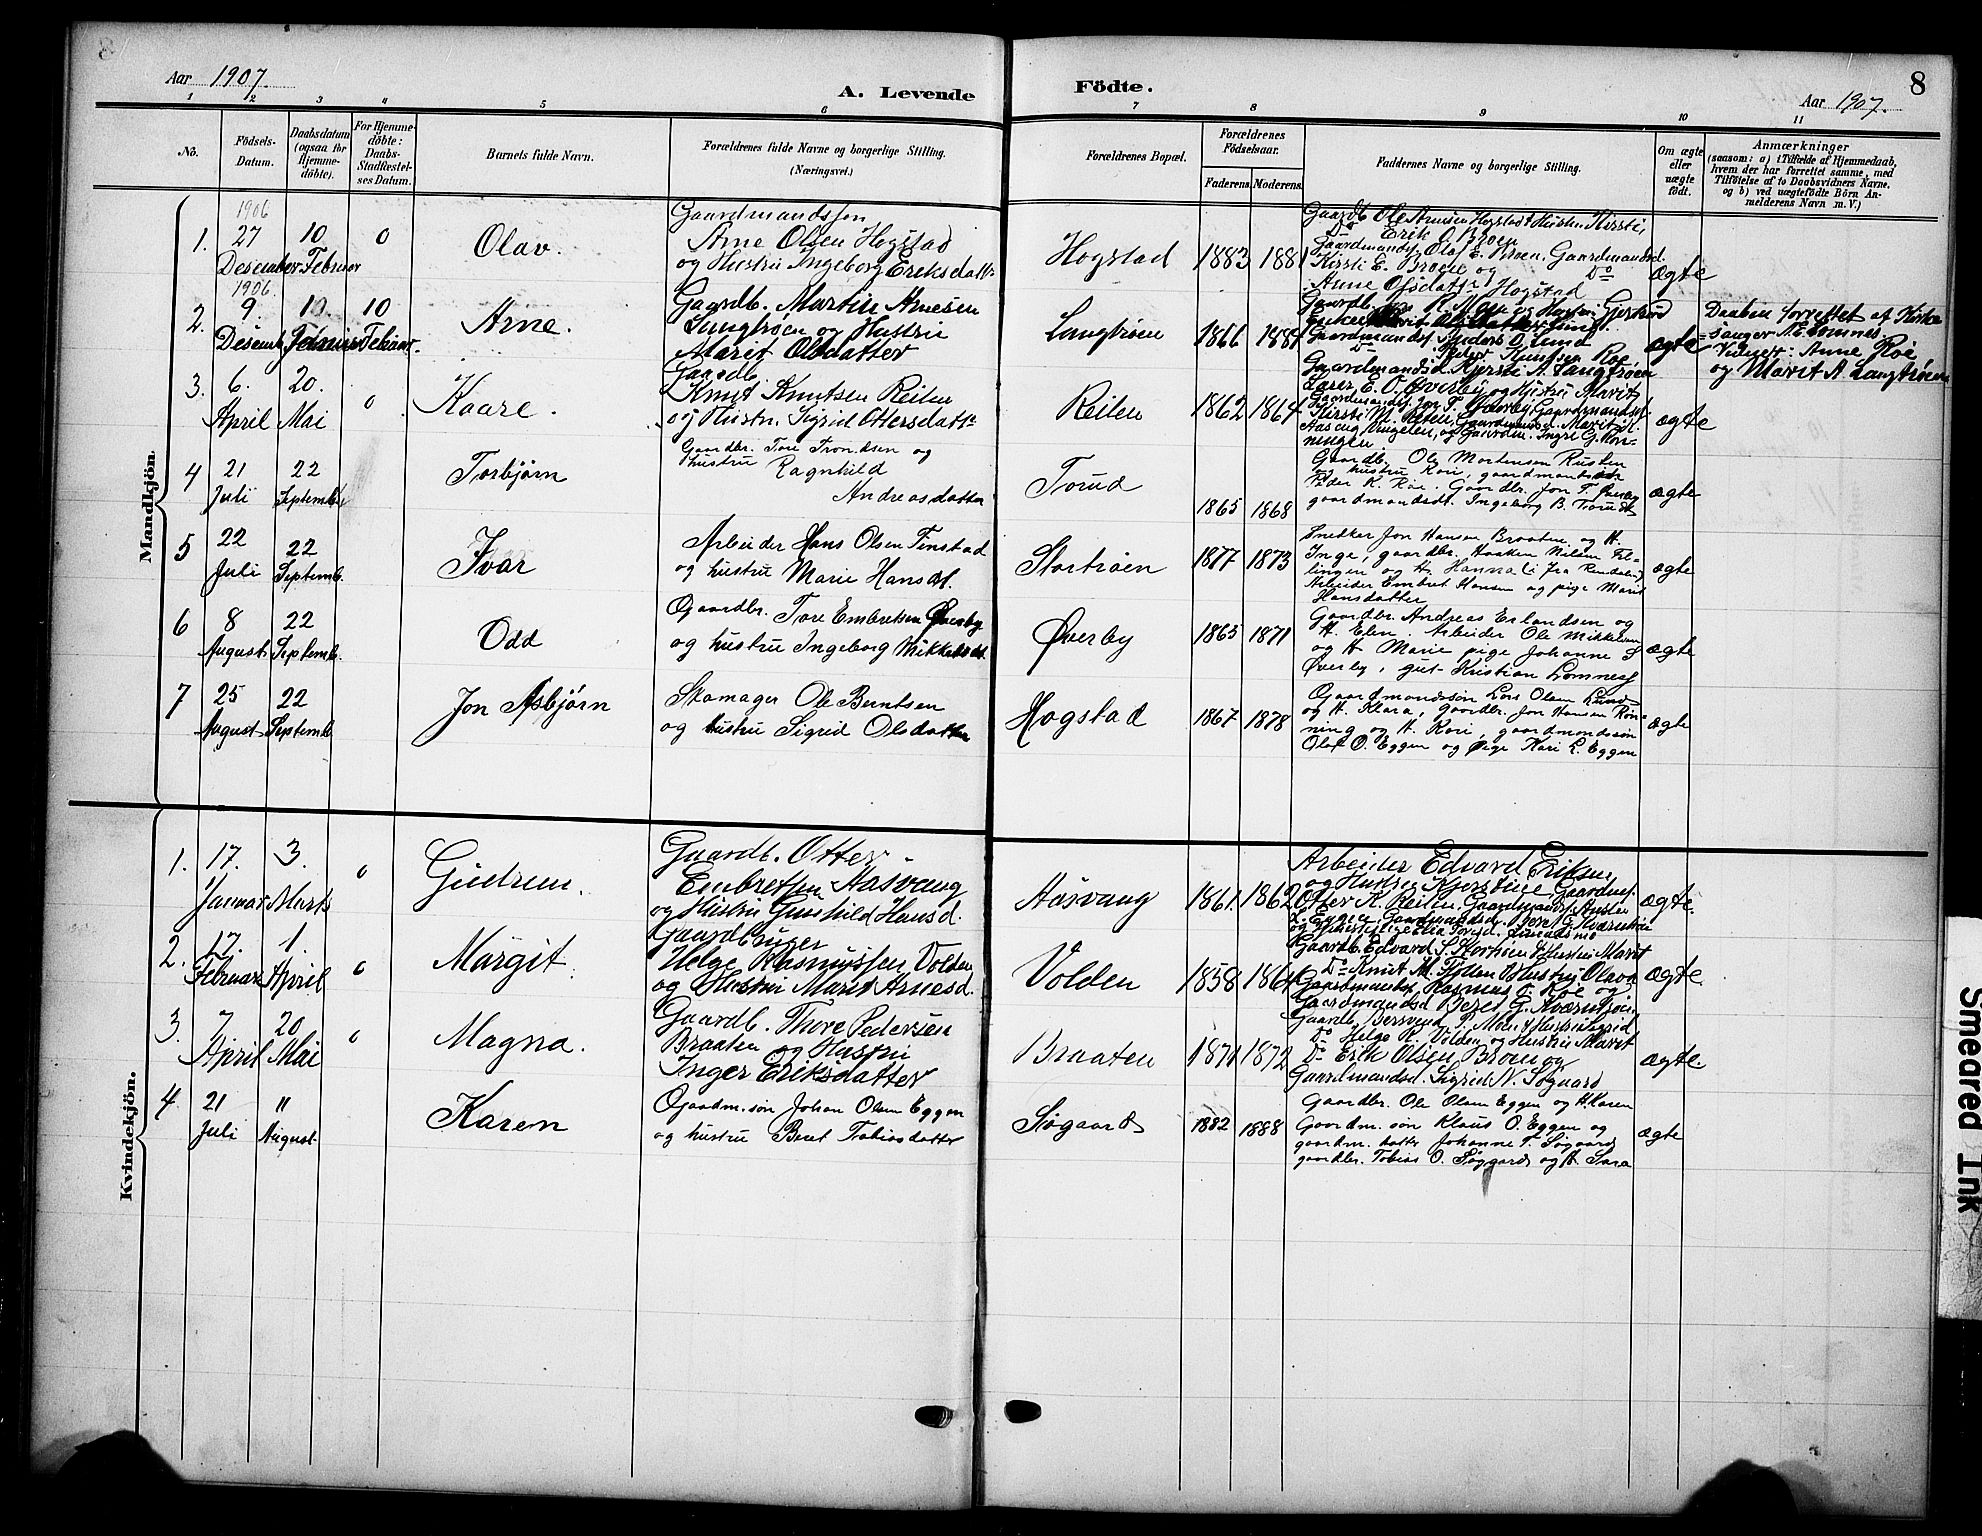 8
Aar 1907.
A. Levende
Födte.
Aar 1907.
8
1 2 3 4 5 6 7 8 9 10 11
No.
Födsels-
Datum.
Daabsdatum
(ogsaa for
Hjemme-
döbte).
For Hjemme-
döbte:
Daabs-
Stadfæstel-
ses Datum.
Barnets fulde Navn.
Forældrenes fulde Navne og borgerlige Stilling.
(Næringsvei.)
Forældrenes Bopæl.
Forældrenes
Födselsaar.
Faderens. Moderens.
Faddernes Navne og borgerlige Stilling.
Om ægte
eller
uægte
födt.
Anmærkninger
(saasom: a) i Tilfælde af Hjemmedaab,
hvem der har forrettet samme, med
Tilföielse af to Daabsvidners Navne,
og b) ved uægtefödte Börn An-
melderens Navn m. V.)
Mandkjön.
1.
1906
27
Desember
10
Februar
0
Olav.
Gaardmandssøn
Arne Olsen Hogstad
og Hustru Ingeborg Eriksdatt.
Hogstad
1883
1881
Gaardb. Ole Arnesen Hogstad & Hustru Kirsti,
Do Erik O. Broen
Gaardmands. Olaf E. Broen, Gaardmandsd.
Kirsti E. Broen og Do
Anne Olsdatter Hogstad
ægte
2.
1906.
9.
Desemb.
10.
Februar
10
Februar.
Arne.
Gaardb. Martin Arnesen
Langtrøen og Hustru
Marit Olsdatter
Langtrøen
1866
1884
Gaardmandsd. Kjersti A. Langtrøen
ægte
Daaben forrettet af Kirke
sanger A. E. Lomnes.
Vidner: Anne Røe
og Marit A Langtrøen
3.
6.
April
20.
Mai
0
Kaare.
Gaardb.
Knut Knutsen Reiten
og Hustru Sigrid Ottersdatt.
Reiten
1862
1864
Lærer E. O. Øverby og Hustru Marit,
Gaardmands. Jon T. Øverby, Gaardmandsd.
Kirsti M. Reiten, Gaardmandsd. Marit H.
ægte
4
21
Juli
22
September
Torbjørn
Gaardbr. Tore Trondsen og
hustru Ragnhild
Andreasdatter
Torud
1865
1868
Gaardbr. Ole Mortensen Rusten
og hustru Kari, gaardmandssøn
Peder K. Røe. Gaardbr. Jon T. Øverby
gaardmandsdt. Ingeborg B. Torud
ægte
5
22
Juli
22
Septemb.
Ivar
Arbeider Hans Olsen Finstad
og hustru Marie Hansdt.
Stortrøen
1877
1873
Smedker Jon Hansen Braaten og H.
Inge, gaardbr. Haaken Nilsen Fel-
lingen og H. Hanna (i fra Rendalen)
Arbeider Embret Hansen og pige Marit
Hansdatter
ægte
6
8
August
22
Septemb.
Odd
Gaardbr. Tore Embretsen Øverby
og hustru Ingeborg Mikkelsdt.
Øverby
1865
1871
Gaardbr. Andreas Erlandsen og
H. Elen. Arbeider Ole Mikkelsen
og H Marie pige Johanne S
Øverby, gut Kristian Lomnes
ægte
7
25
August
22
Septemb
Jon Asbjørn
Skomager Ole Berntsen
og hustru Sigrid Olsdatter
Hogstad
1867
1878
Gaardmandssøn Lars Olsen Lund
og H. Klara, gaardbr. Jon Hansen Røn-
ning og H. Kari, gaardmandssøn
Olaf O. Eggen og Pige Kari L. Eggen
ægte
Kvindekjön.
1.
17.
Januar
3.
Marts
0
Gudrun.
Gaardb. Otter
Embretsen Aasvang
og Hustru Gunhild Hansd.
Aasvang
1861.
1862
Arbeider Edvard Eriksen
Otter K. Reiten, Gaardmands. Anders
ægte.
2.
17.
Februar
1.
April
0
Margit.
Gaardbruger
Helge Rasmussen Volden
og Hustru Marit Arnesd.
Volden
1858
1864
Gaardb. Edvard S. Stortrøen & Hustru Marit
Do Knut M. Tollen & Hustru Olava
Gaardmands. Rasmus O. Røe og
Gaardmandsd. Beret G. Kværntrøen
ægte.
3.
7
April
20
Mai
0
Magna.
Gaardb. Thore Pedersen
Braaten og Hustru
Inger Eriksdatter
Braaten
1871
1872
Gaardb. Bersvend P. Moen & Hustru Sigrid
Do Helge R. Volden og Hustru Marit
Do Erik Olsen Broen og
Gaardmandsd. Sigrid N. Søgaard
ægte.
4
21
Juli
11
August
Karen
Gaardm.søn Johan Olsen Eggen
og hustru Beret Tobiasdatter
Søgaard
1882
1888
Gaardbr. Ole Olsen Eggen og H. Karen
Gaardm. søn Klaus O. Eggen og
gaardm. datter Johanne T. Søgaard
gaardbr. Tobias O. Søggard og H Sara
ægte
Smeared Ink